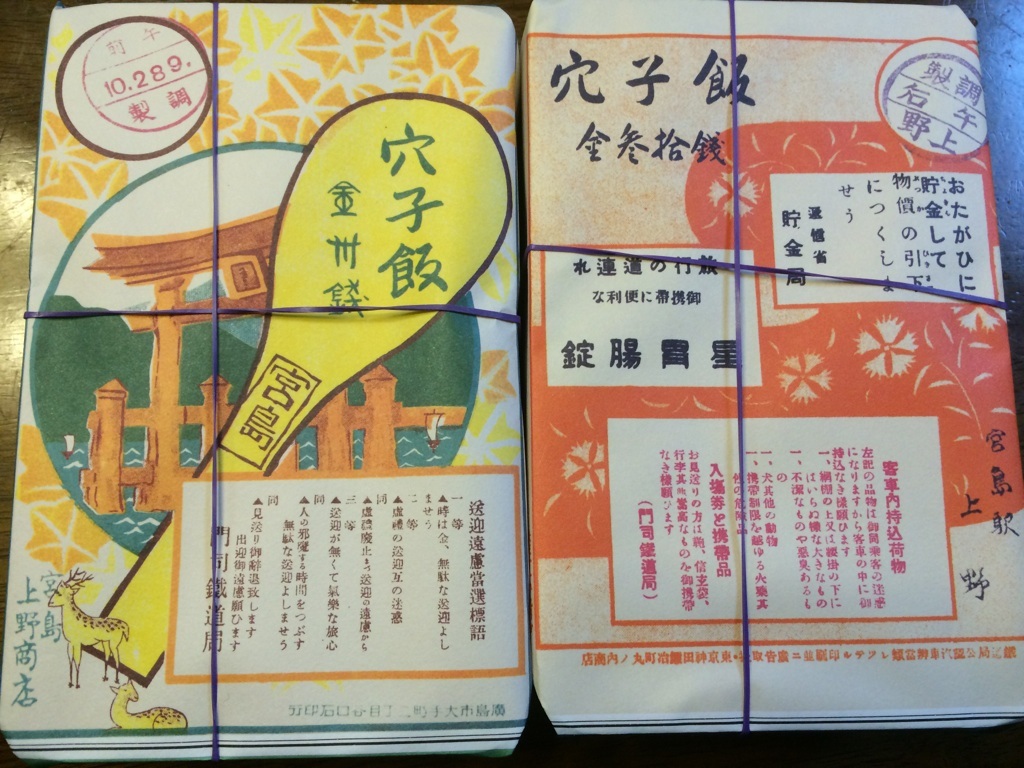 午前
10.2.89.
調製
穴子飯
金卅錢
宮島
送迎遠慮當選標語
一等
▲時は金、無駄な送迎よし
ませう
二等
▲虛禮の送迎互の迷惑
同
▲虛禮廢止まづ送迎の遠慮から
三等
▲送迎が無くて氣樂な旅心
同
▲人の邪魔する時間をつぶす
無駄な送迎よしませう
同
▲見送り御辭退致します
出迎御遠慮願ひます
門司鐵道局
宮島
上野商店
穴子飯
金參拾錢
調製
午
上野
石
おたがひに
貯金して
物價の引下
につくしま
せう
遞信省
貯金局
旅行の道連れ
御携帶に便利な
星胃腸錠
客車內持込荷物
左記の品物は御同乘客の迷惑
になりますから客車の中に御
持込なき樣願ひます
一、網棚の上又は腰掛の下に
はいらぬ樣な大きなもの
一、不潔なものや惡臭あるも
の
一、犬其他の動物
一、携帶制限を越ゆる火藥其
他の危險品
入場劵と携帶品
お見送りの方は鞄、信玄袋、
行李其他嵩高なものを御携帶
なき樣願ひます
(門司鐵道局)
宮島駅
上野